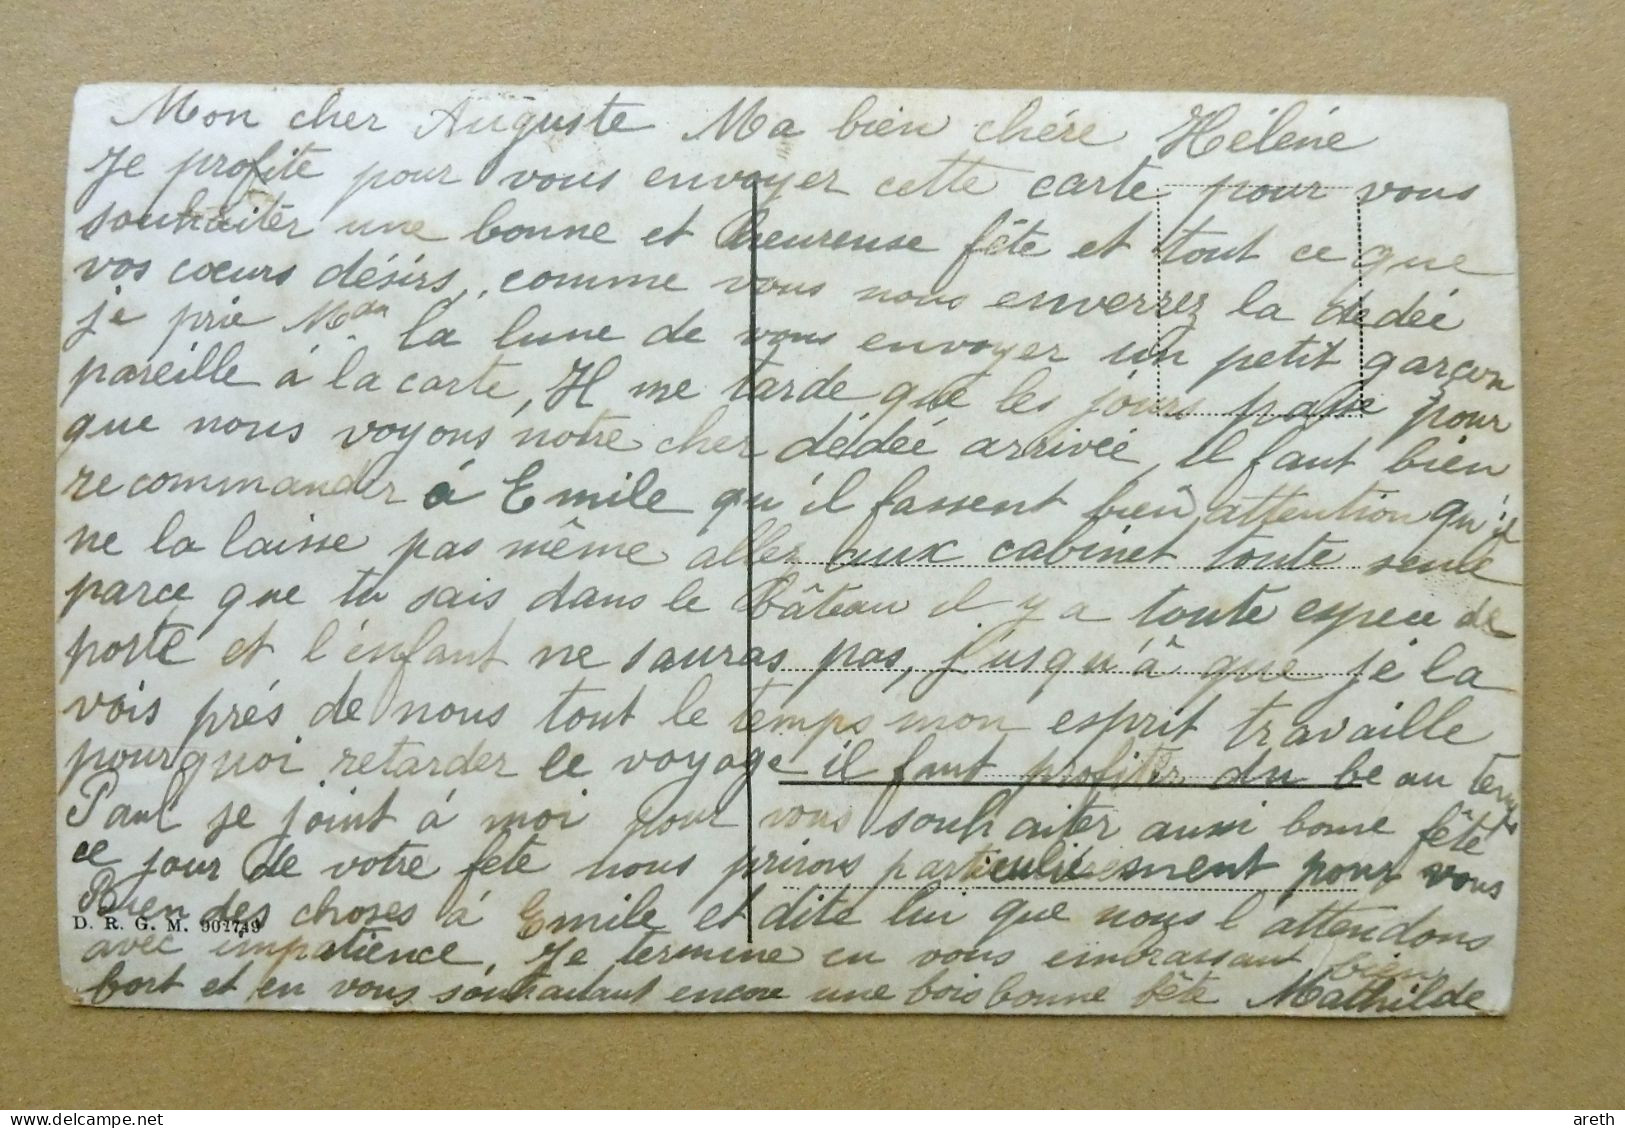 Mon cher Auguste Ma bien chére Hélène
Je profite pour vous envoyer cette carte pour vous
souhaitér une bonne et heureuse fête et tout ce que
vos cœurs désirs, comme vous nous enverrez la dédée
je prie Mdm la lune de vous envoyer un petit garçon
pareille á la carte, Il me tarde que les jours passe pour
que nous voyons notre cher dédée arrivée, il faut bien
recommander á Emile qu'il fassent bien attention qu'il
ne la laisse pas même aller aux cabinet toute seule
parce que tu sais dans le Bâteau il y a toute espece de
porte et l'enfant ne sauras pas, jusqu'à que je la
vois prés de nous tout le temps mon esprit travaille
pourquoi retarder le voyage il faut profiter du beau temps
Paul se joint á moi pour vous souhaiter aussi bonne fête
ce jour de votre fête nous prirons particuliérement pour vous
Bien des choses á Emile et dite lui que nous l'attendons
D. R. G. M. 901749
avec impatience, Je termine en vous embrassant bien
fort et en vous souhaitant encore une fois bonne fête Mathilde
areth